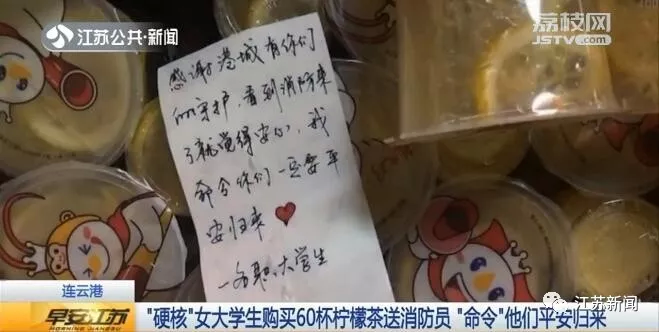 江苏公共·新闻
荔枝网
JSTV.com
感谢港城有你们
的守护,看到消防来
了就觉得安心,我
命令你们一定要平
安归来
一名耶大学生
连云港
早安江苏
"硬核"女大学生购买60杯柠檬茶送消防员 "命令"他们平安归来
江苏新闻